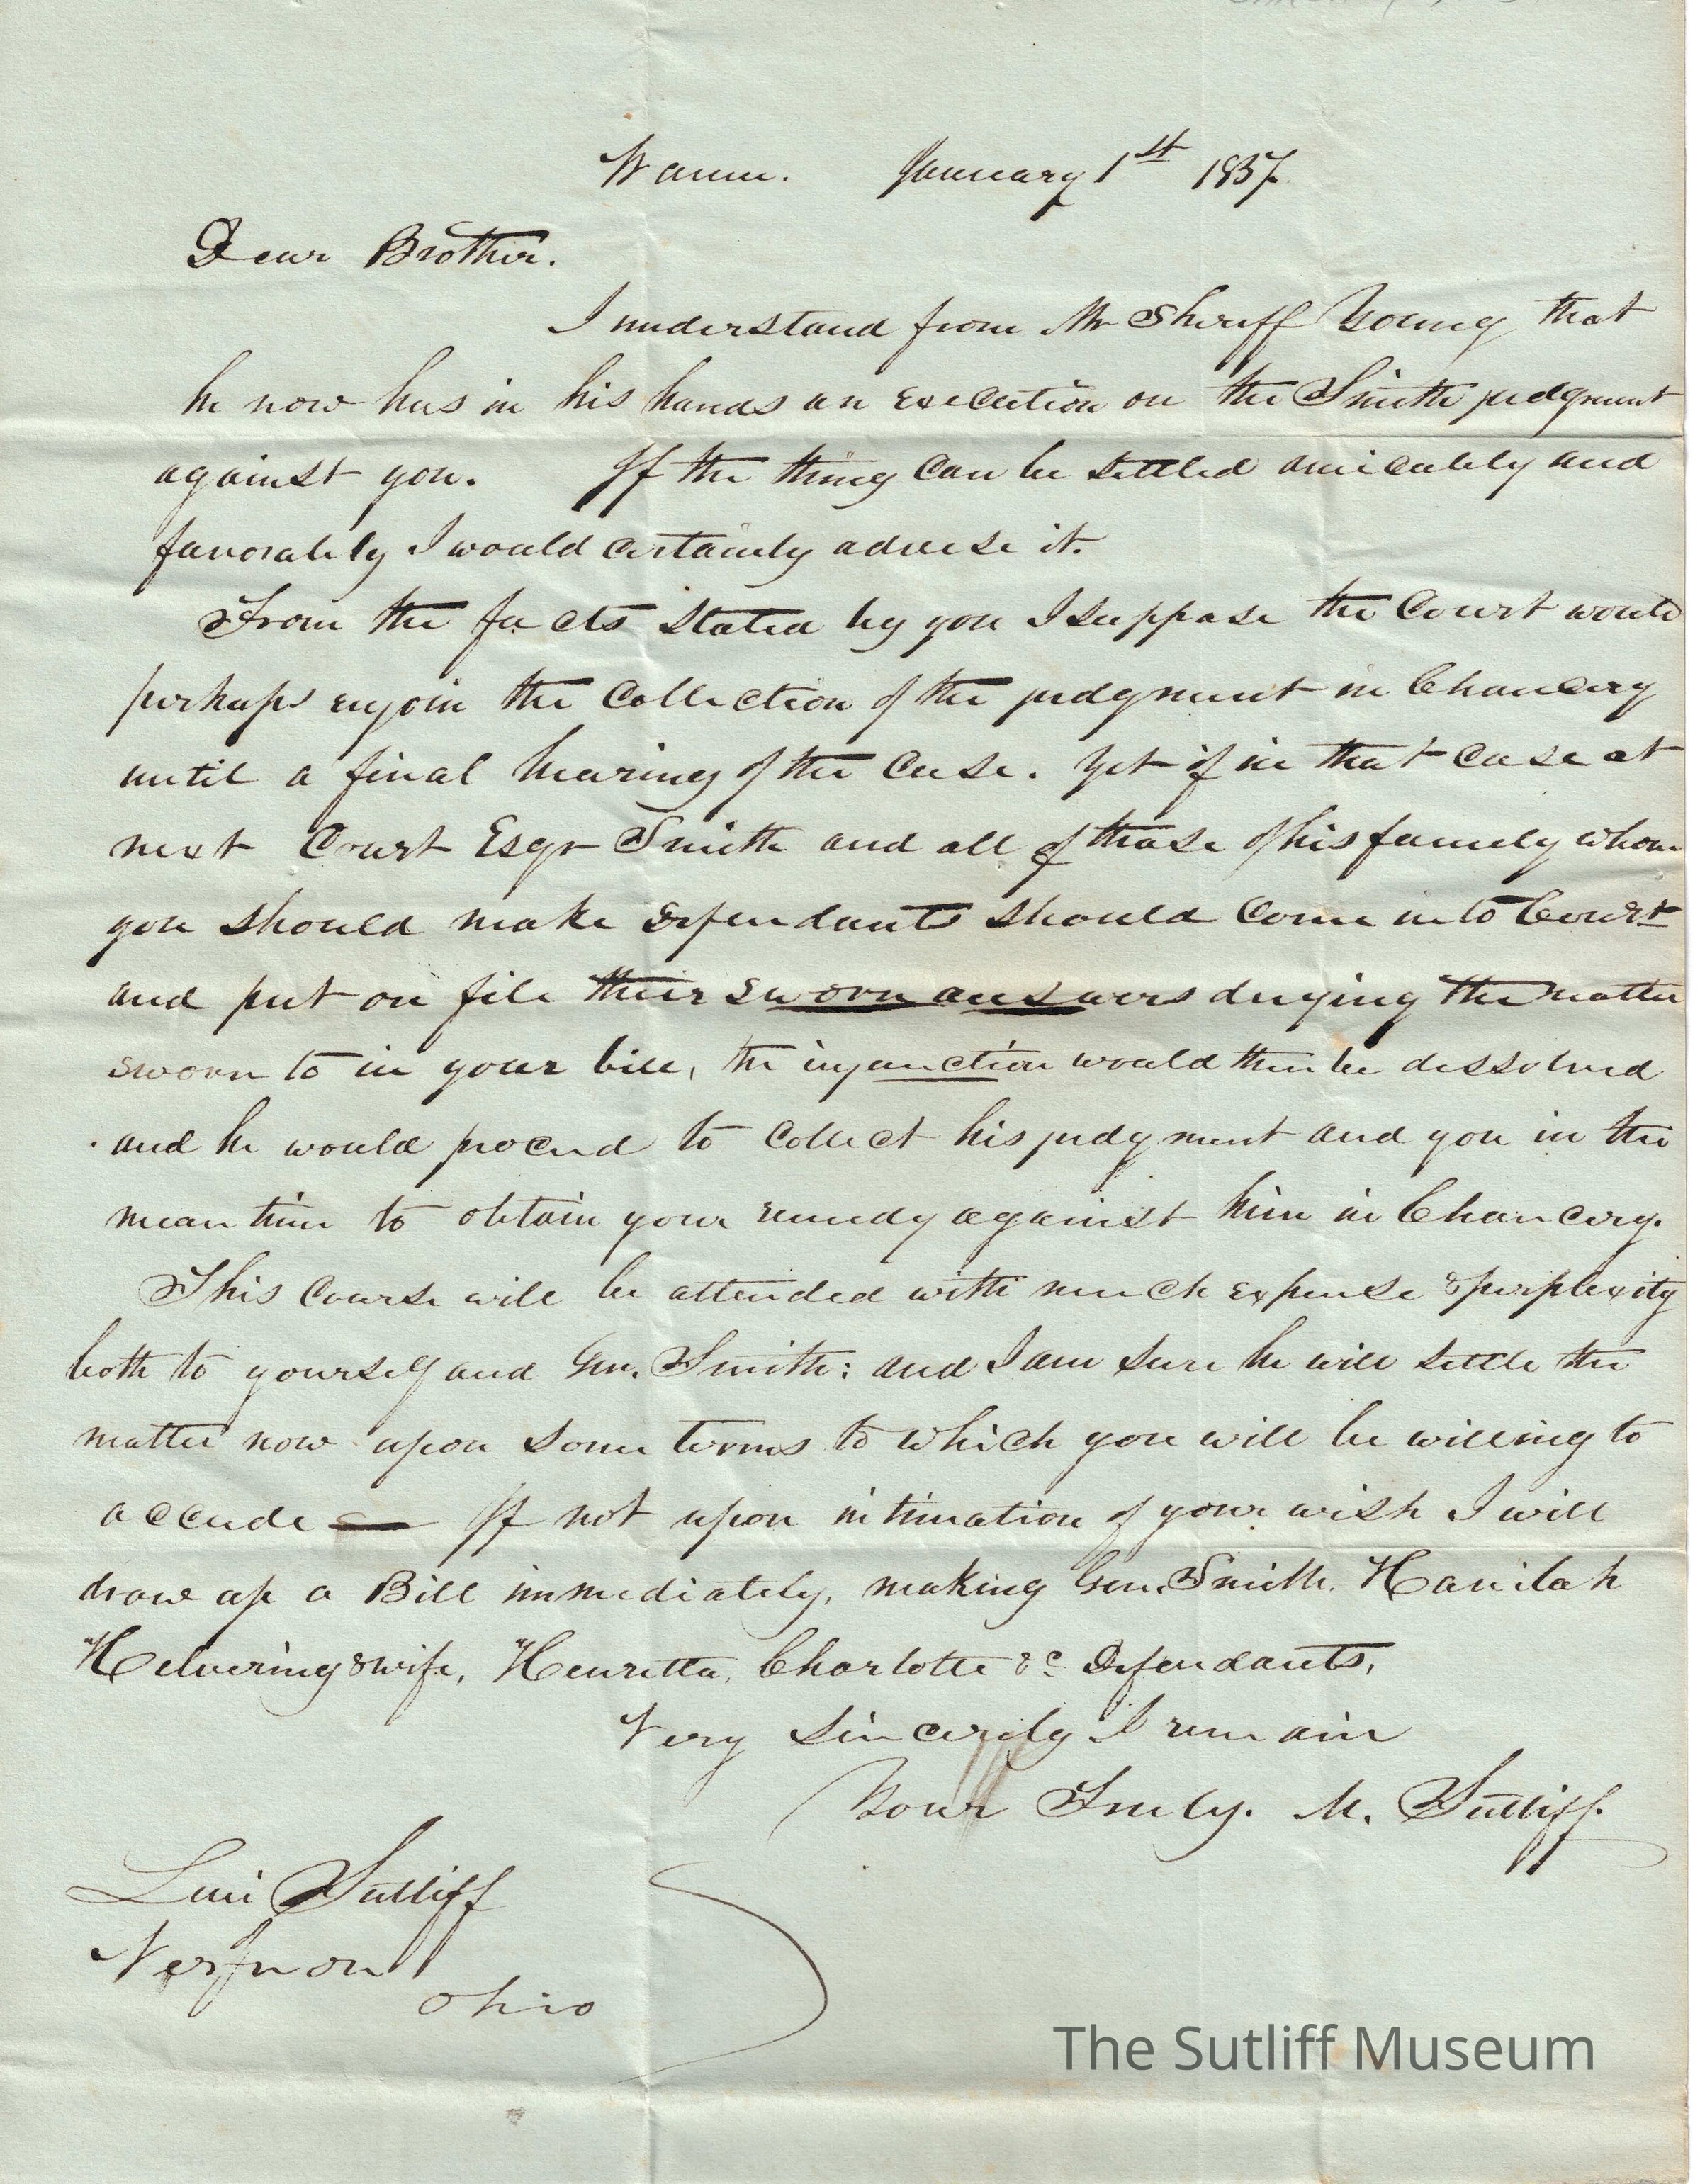 Warren. January 1st 1837.
Dear Brother.
I understand from Mr Sheriff Young that
he now has in his hands an execution on the Smith judgment
against you. If the thing can be settled amicably and
favorably I would certainly advise it.
From the facts stated by you I suppose the Court would
perhaps enjoin the Collection of the judgment in Chancery
until a final hearing of the case. Yet if in that case at
next Court Esqr Smith and all of those of his family whom
you should make defendants should come into Court
and put on file their sworn answers denying the matter
sworn to in your bill, the injunction would then be dissolved
and he would proceed to collect his judgment and you in the
mean time to obtain your remedy against him in Chancery.
This course will be attended with much expense & perplexity
both to yourself and Gen. Smith: and I am sure he will settle the
matter now upon some terms to which you will be willing to
accede — If not upon intimation of your wish I will
draw up a Bill immediately, making Gen. Smith. Havilah
Helvering & wife, Henretta, Charlotte &c Defendants,
Very sincerely I remain
Your Truly. M. Sutliff.
Levi Sutliff
Vernon
Ohio
The Sutliff Museum